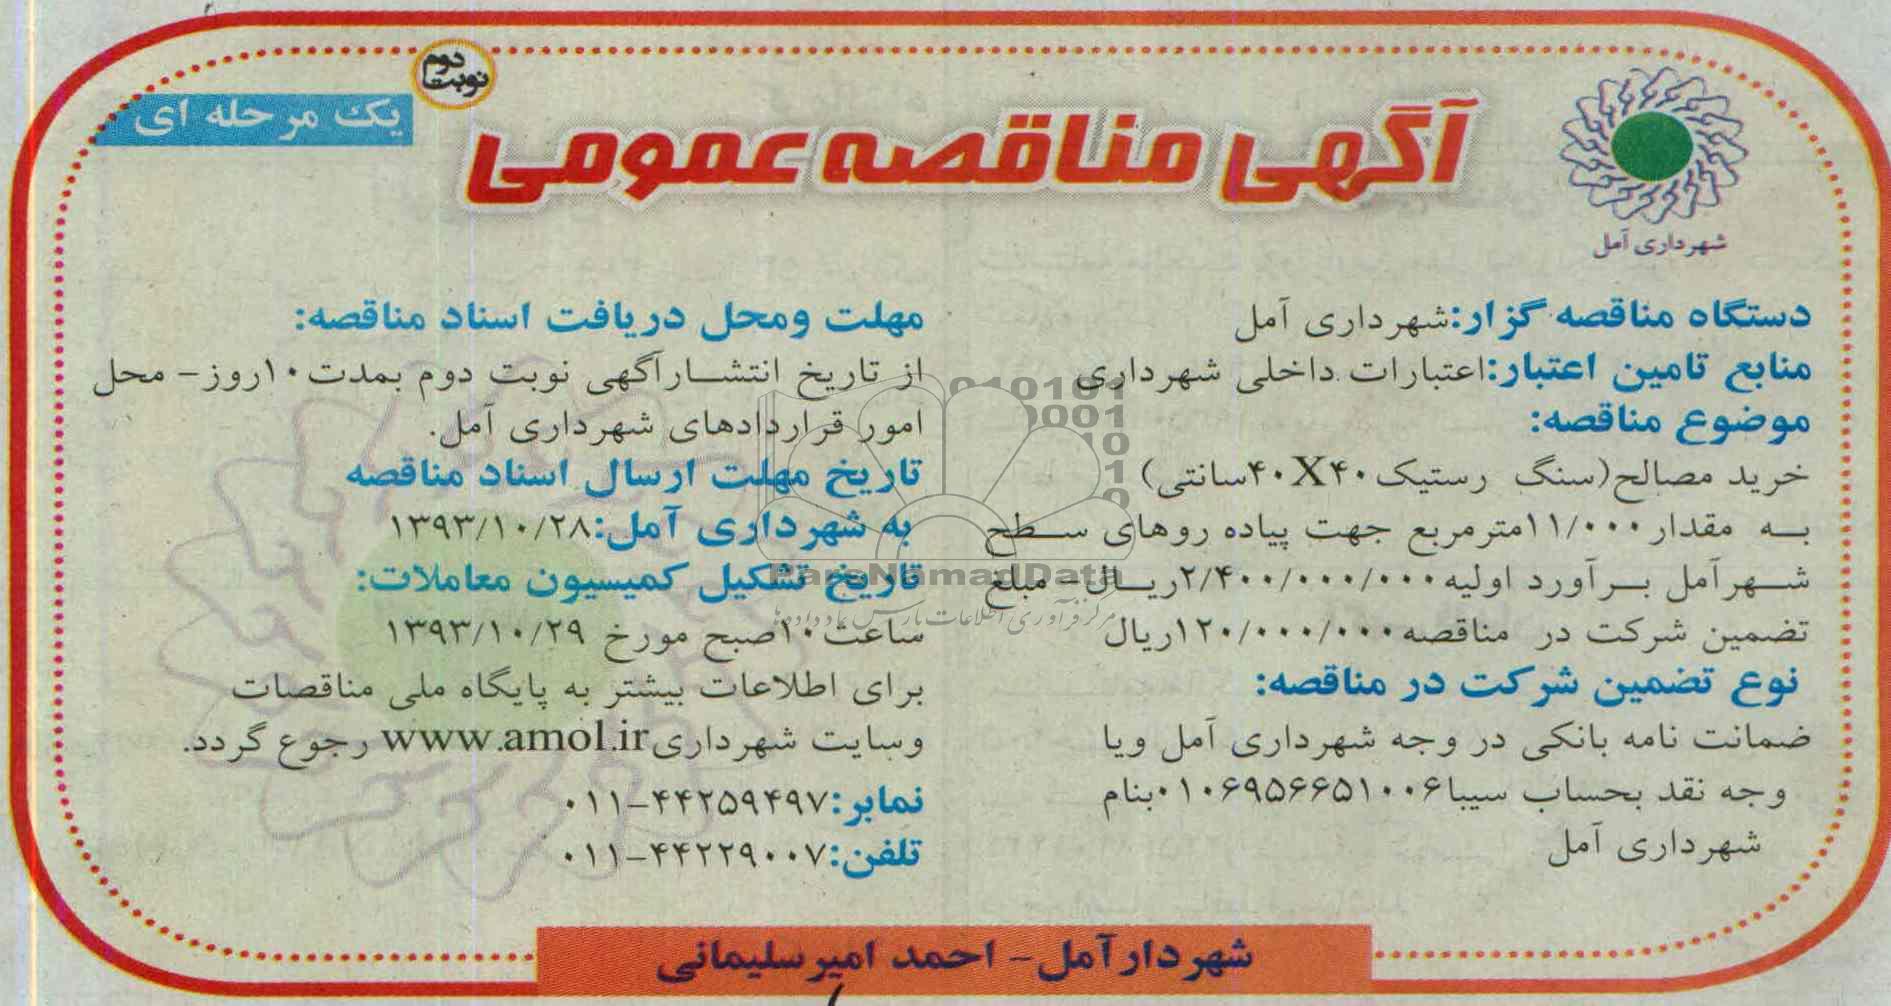 آگهی مناقصه عمومی
نوبت دوم
یک مرحله ای
شهرداری آمل
دستگاه مناقصه گزار:شهرداری آمل
منابع تامین اعتبار:اعتبارات داخلی شهرداری
موضوع مناقصه:
خرید مصالح(سنگ رستیک۴۰X۴۰سانتی)
به مقدار۱۱/۰۰۰مترمربع جهت پیاده روهای سطح
شهرآمل برآورد اولیه۲/۴۰۰/۰۰۰/۰۰۰ریال- مبلغ
تضمین شرکت در مناقصه۱۲۰/۰۰۰/۰۰۰ریال
نوع تضمین شرکت در مناقصه:
ضمانت نامه بانکی در وجه شهرداری آمل ویا
وجه نقد بحساب سیبا۰۱۰۶۹۵۶۶۵۱۰۰۶بنام
شهرداری آمل
مهلت ومحل دریافت اسناد مناقصه:
از تاریخ انتشارآگهی نوبت دوم بمدت۱۰روز- محل
امور قراردادهای شهرداری آمل.
تاریخ مهلت ارسال اسناد مناقصه
به شهرداری آمل:۱۳۹۳/۱۰/۲۸
تاریخ تشکیل کمیسیون معاملات:
ساعت۱۰صبح مورخ ۱۳۹۳/۱۰/۲۹
برای اطلاعات بیشتر به پایگاه ملی مناقصات
وسایت شهرداریwww.amol.ir رجوع گردد.
نمابر:۴۴۲۵۹۴۹۷-۰۱۱
تلفن:۴۴۲۲۹۰۰۷-۰۱۱
شهردارآمل- احمد امیرسلیمانی
ParsNamadData
مرکز فرآوری اطلاعات پارس نماد داده‌ها